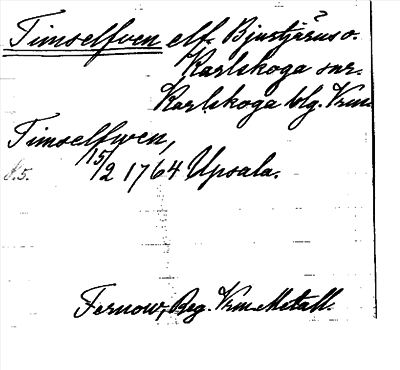 Timselfven elf. Bjurtjärns o.
Karlskoga snr.
Karlskoga blg. Vrm.
Timselfwen,
s. 5. 15/2 1764 Upsala.
Fernow, Beg. Vrm. Metall.